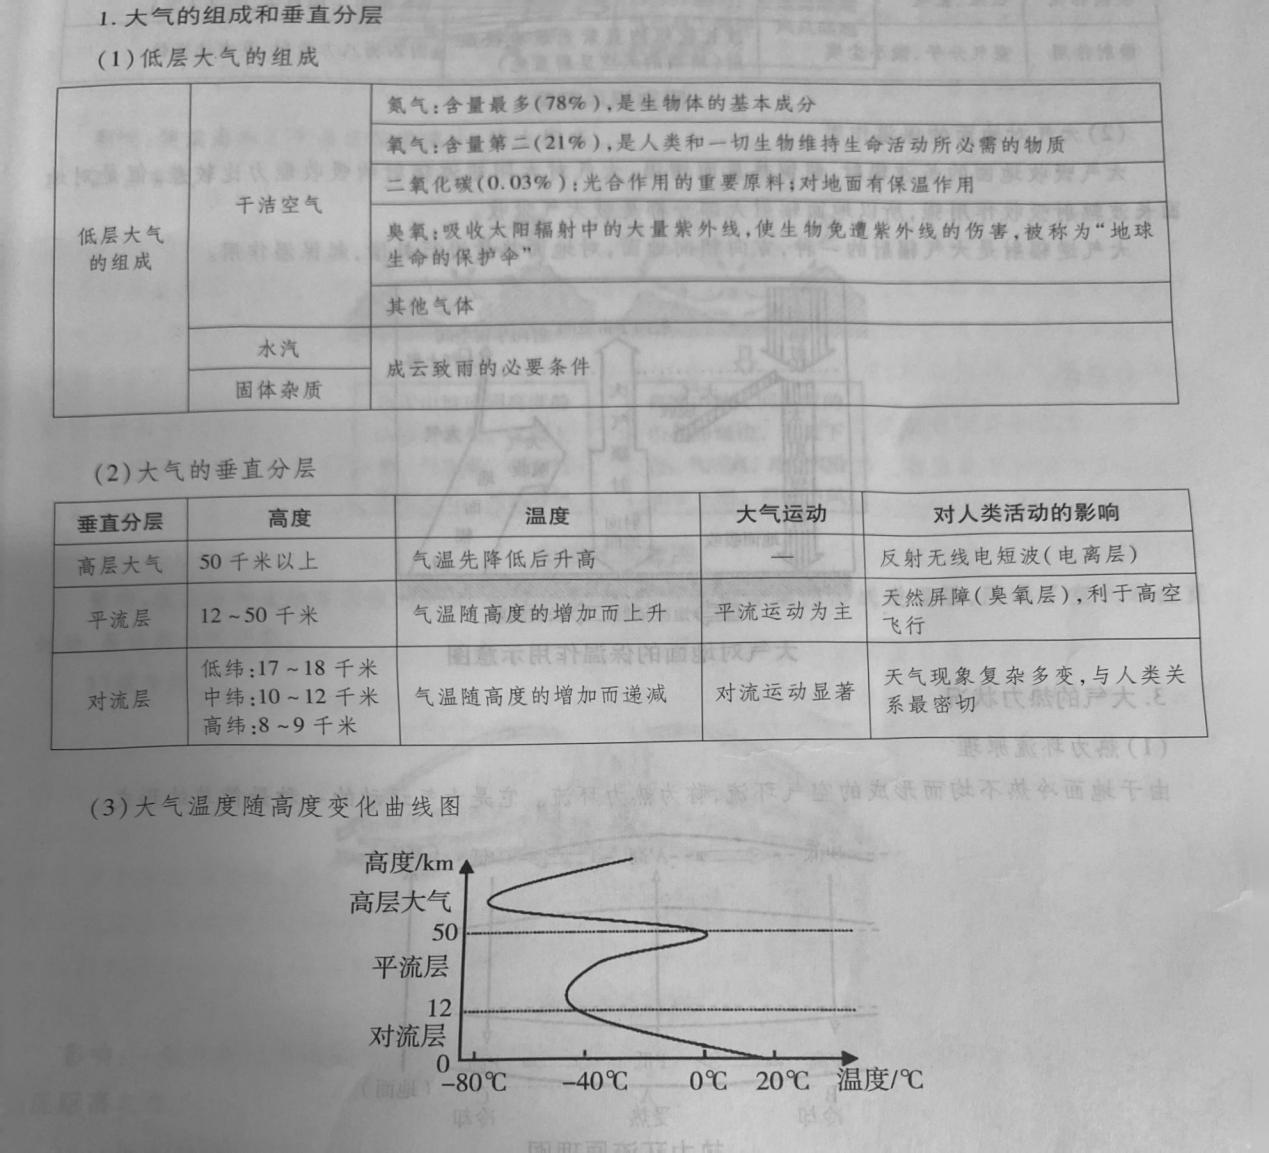 1. 大气的组成和垂直分层
(1)低层大气的组成
低层大气
的组成
干洁空气
氮气:含量最多(78%),是生物体的基本成分
氧气:含量第二(21%),是人类和一切生物维持生命活动所必需的物质
二氧化碳(0.03%):光合作用的重要原料;对地面有保温作用
臭氧:吸收太阳辐射中的大量紫外线,使生物免遭紫外线的伤害,被称为“地球
生命的保护伞”
其他气体
水汽
固体杂质
成云致雨的必要条件
(2)大气的垂直分层
垂直分层 高度 温度 大气运动 对人类活动的影响
高层大气 50 千米以上 气温先降低后升高 — 反射无线电短波(电离层)
平流层 12~50 千米 气温随高度的增加而上升 平流运动为主 天然屏障(臭氧层),利于高空
飞行
对流层
低纬:17~18 千米
中纬:10~12 千米
高纬:8~9 千米
气温随高度的增加而递减
对流运动显著
天气现象复杂多变,与人类关
系最密切
(3)大气温度随高度变化曲线图
高度/km
高层大气
50
平流层
12
对流层
0
-80℃ -40℃ 0℃ 20℃ 温度/℃